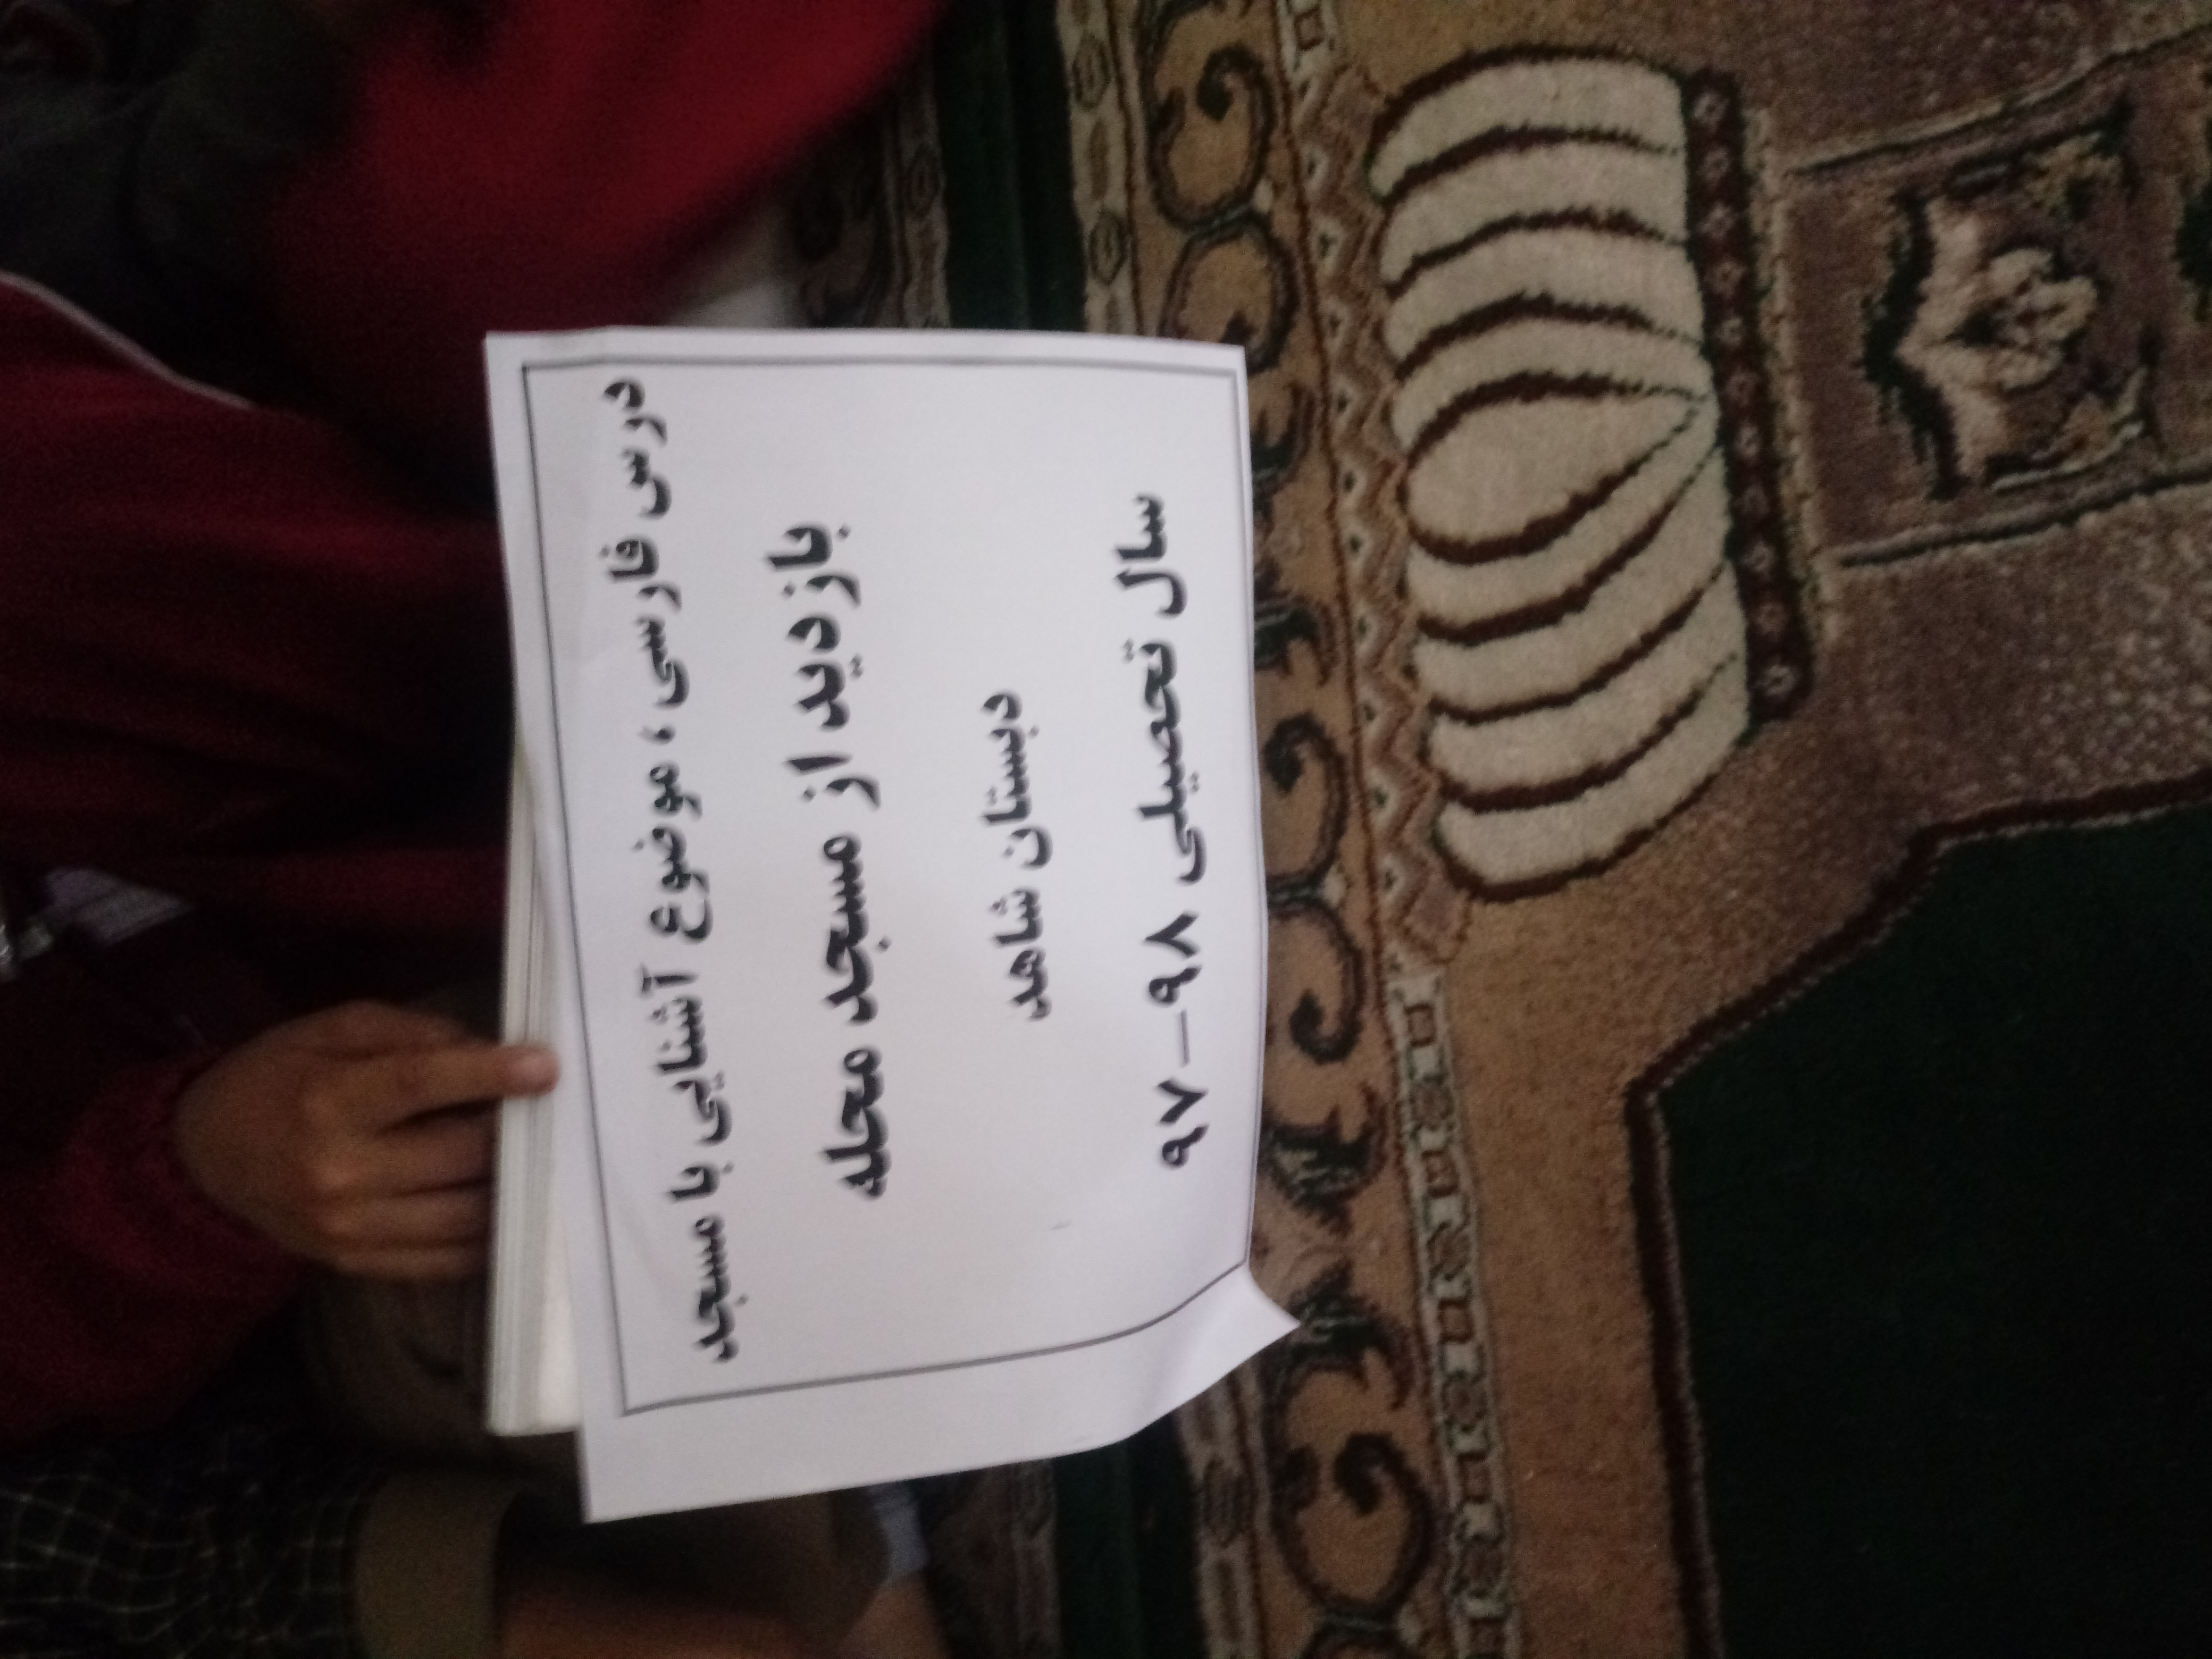 درس فارسی ، موضوع آشنایی با مسجد
بازدید از مسجد محله
دبستان شاهد
سال تحصیلی ۹۸-۹۷